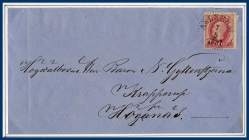 Högvälborne Herr Baron N. Gyllenstjerna
Krapperup
Höganäs